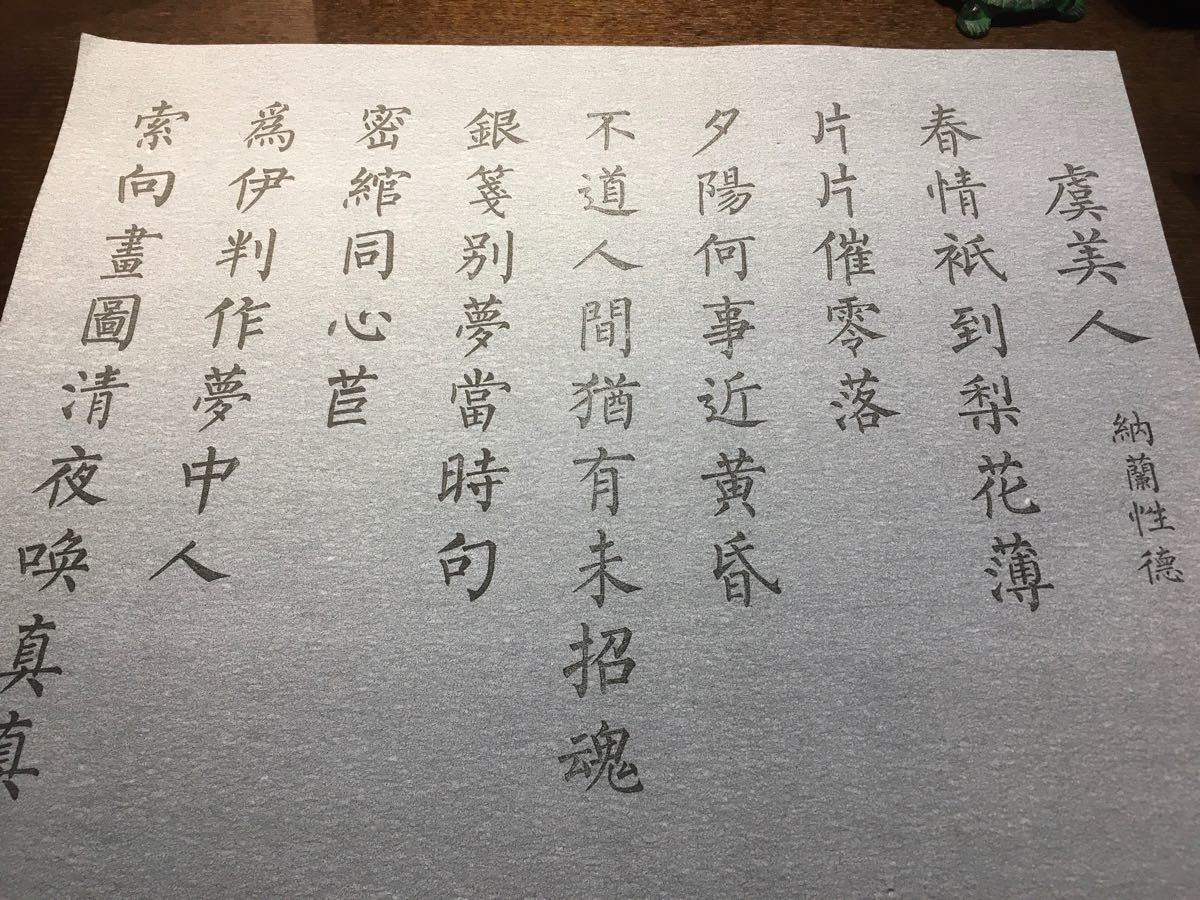 虞美人
納蘭性德
春情衹到梨花薄
片片催零落
夕陽何事近黄昏
不道人間猶有未招魂
銀箋别夢當時句
密綰同心苣
爲伊判作夢中人
索向畫圖清夜唤真真